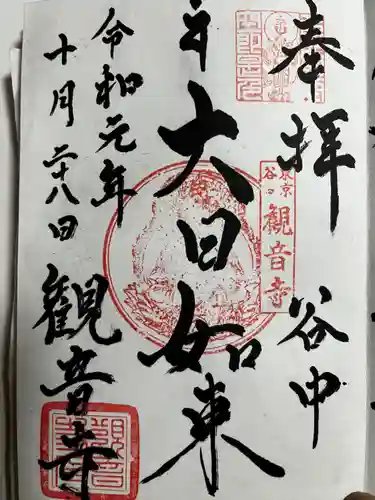 奉拝
谷中
大日如来
令和元年
十月二十八日
観音寺
東京
谷中
観音寺